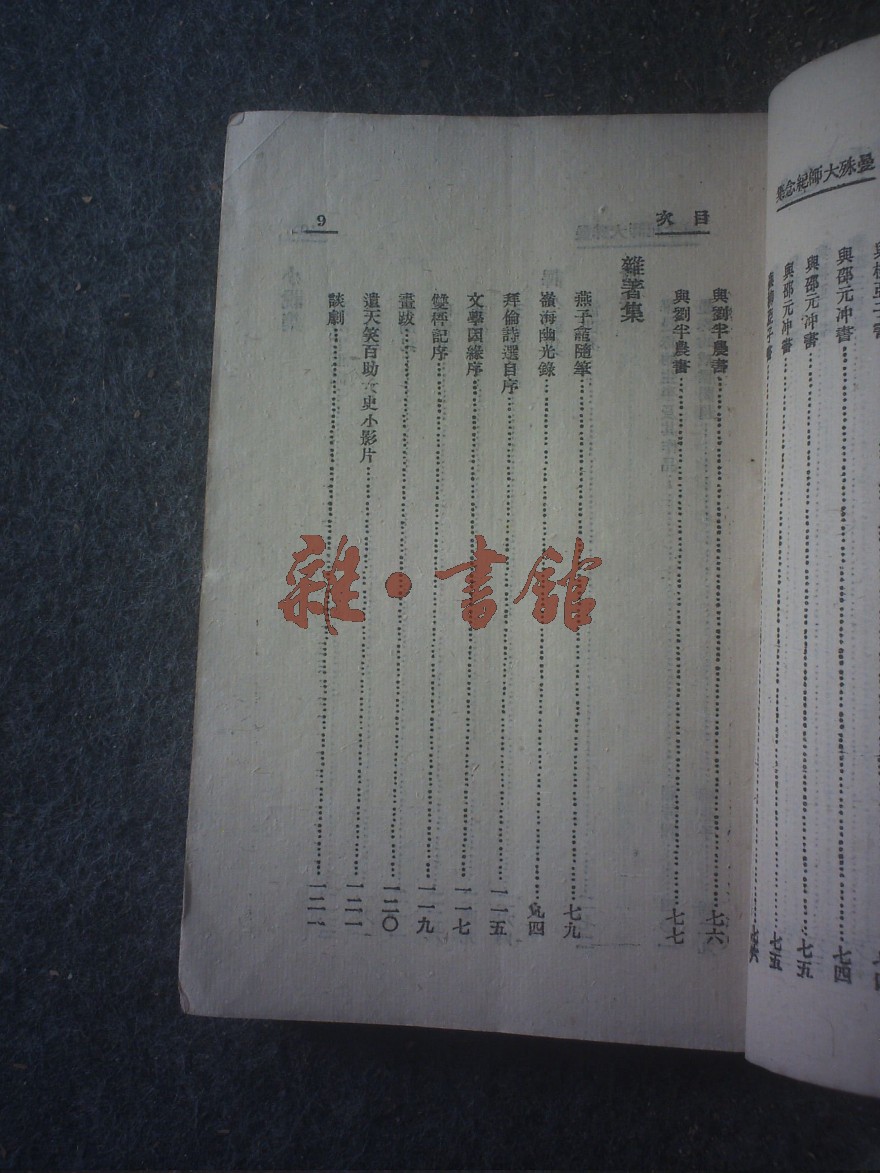 曼殊大師紀念集
與邵元冲書 七四
與邵元冲書 七五
與邵元冲書 七五
目次 9
與劉半農書 七六
與劉半農書 七七
雜著集
燕子龕隨筆 七九
嶺海幽光錄 九四
拜倫詩選自序 一一五
文學因緣序 一一七
雙枰記序 一一九
畫跋 一二〇
遺天笑百助女史小影片 一二一
談劇 一二一
雜·書館